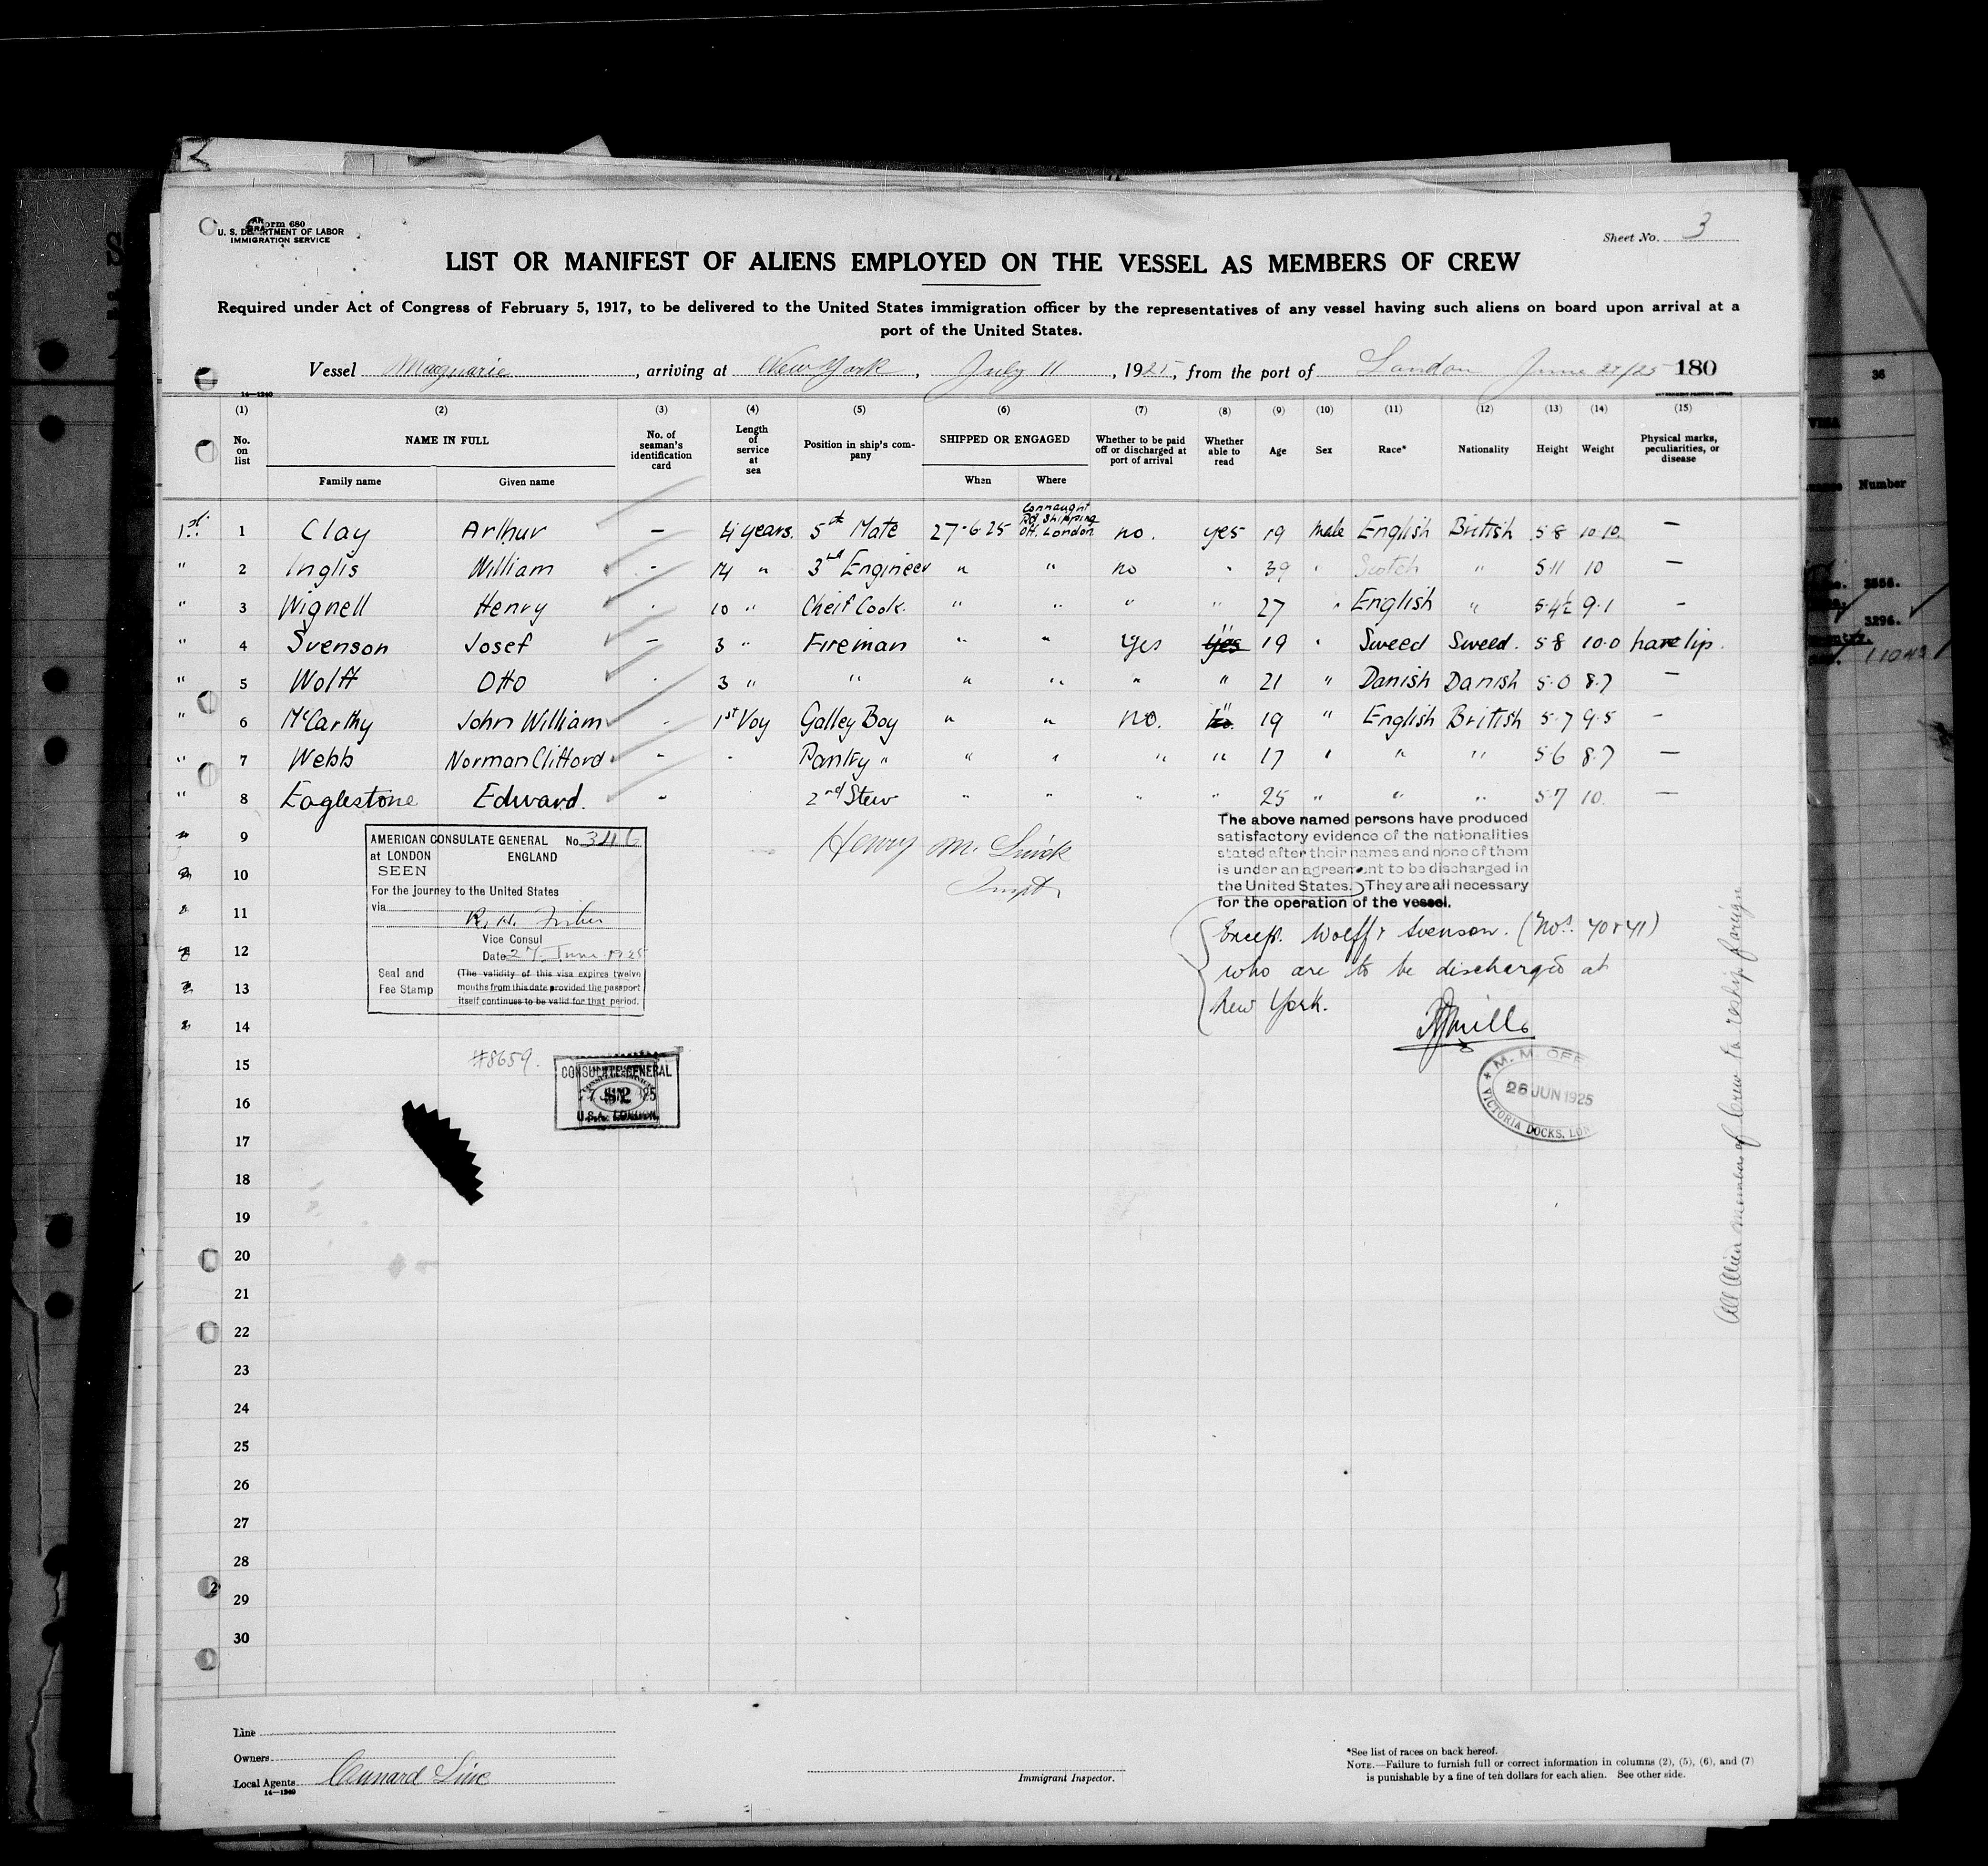 Form 680
U. S. DEPARTMENT OF LABOR
IMMIGRATION SERVICE
Sheet No. 3
LIST OR MANIFEST OF ALIENS EMPLOYED ON THE VESSEL AS MEMBERS OF CREW
Required under Act of Congress of February 5, 1917, to be delivered to the United States immigration officer by the representatives of any vessel having such aliens on board upon arrival at a
port of the United States.
Vessel Macquarie, arriving at New York, July 11, 1925, from the port of London June 27/25 180
14—1240
(1) (2) (3) (4) (5) (6) (7) (8) (9) (10) (11) (12) (13) (14) (15)
No. on list NAME IN FULL No. of seaman's identification card Length of service at sea Position in ship's company SHIPPED OR ENGAGED Whether to be paid off or discharged at port of arrival Whether able to read Age Sex Race* Nationality Height Weight Physical marks, peculiarities, or disease
Family name Given name When Where
1st 1 Clay Arthur — 4 years. 5th Mate 27-6-25 Connaught Rd. Shipping Off. London no. yes 19 Male English British 5·8 10·10 —
" 2 Inglis William - 14 " 3rd Engineer " " no " 39 " Scotch " 5·11 10 —
" 3 Wignell Henry - 10 " Cheif Cook. " " " " 27 " English " 5·4½ 9·1 -
" 4 Svenson Josef - 3 " Fireman " " Yes yes " 19 " Sweed Sweed. 5·8 10·0 hare lip.
" 5 Wolff Otto - 3 " " " " " " 21 " Danish Danish 5·0 8·7 —
" 6 McCarthy John William - 1st Voy Galley Boy " " no. " 19 " English British 5·7 9·5 -
" 7 Webb Norman Clifford - - Pantry " " " " " 17 " " " 5·6 8·7 —
" 8 Eaglestone Edward. - 2nd Stew " " " " 25 " " " 5·7 10. —
9
10
11
12
13
14
15
16
17
18
19
20
21
22
23
24
25
26
27
28
29
30
AMERICAN CONSULATE GENERAL No 346
at LONDON ENGLAND
SEEN
For the journey to the United States
via
Vice Consul
Date 27 June 1925
Seal and Fee Stamp
(The validity of this visa expires twelve
months from this date provided the passport
itself continues to be valid for that period.
Henry M.
The above named persons have produced
satisfactory evidence of the nationalities
stated after their names and none of them
is under an agreement to be discharged in
the United States. They are all necessary
for the operation of the vessel.
Except. Wolff & Svenson. (Nos. 40 & 41)
who are to be discharged at
New York.
#8659.
CONSULATE GENERAL
U.S.A. LONDON.
M. M. OFF
26 JUN 1925
VICTORIA DOCKS, LON
All Alien members of Crew to reship foreign
Line
Owners
Local Agents Cunard Line
14—1240
Immigrant Inspector.
*See list of races on back hereof.
NOTE.—Failure to furnish full or correct information in columns (2), (5), (6), and (7)
is punishable by a fine of ten dollars for each alien. See other side.
36
Number
3556.
3296.